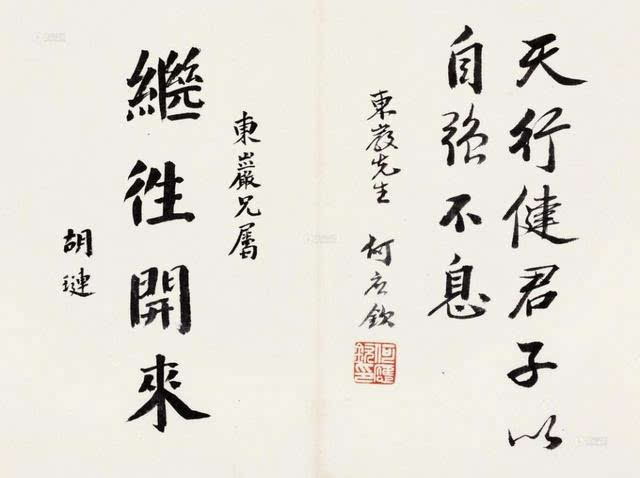 天行健君子以
自強不息
東巖先生 何應欽
何應欽印
繼往開來
東巖兄屬
胡璉